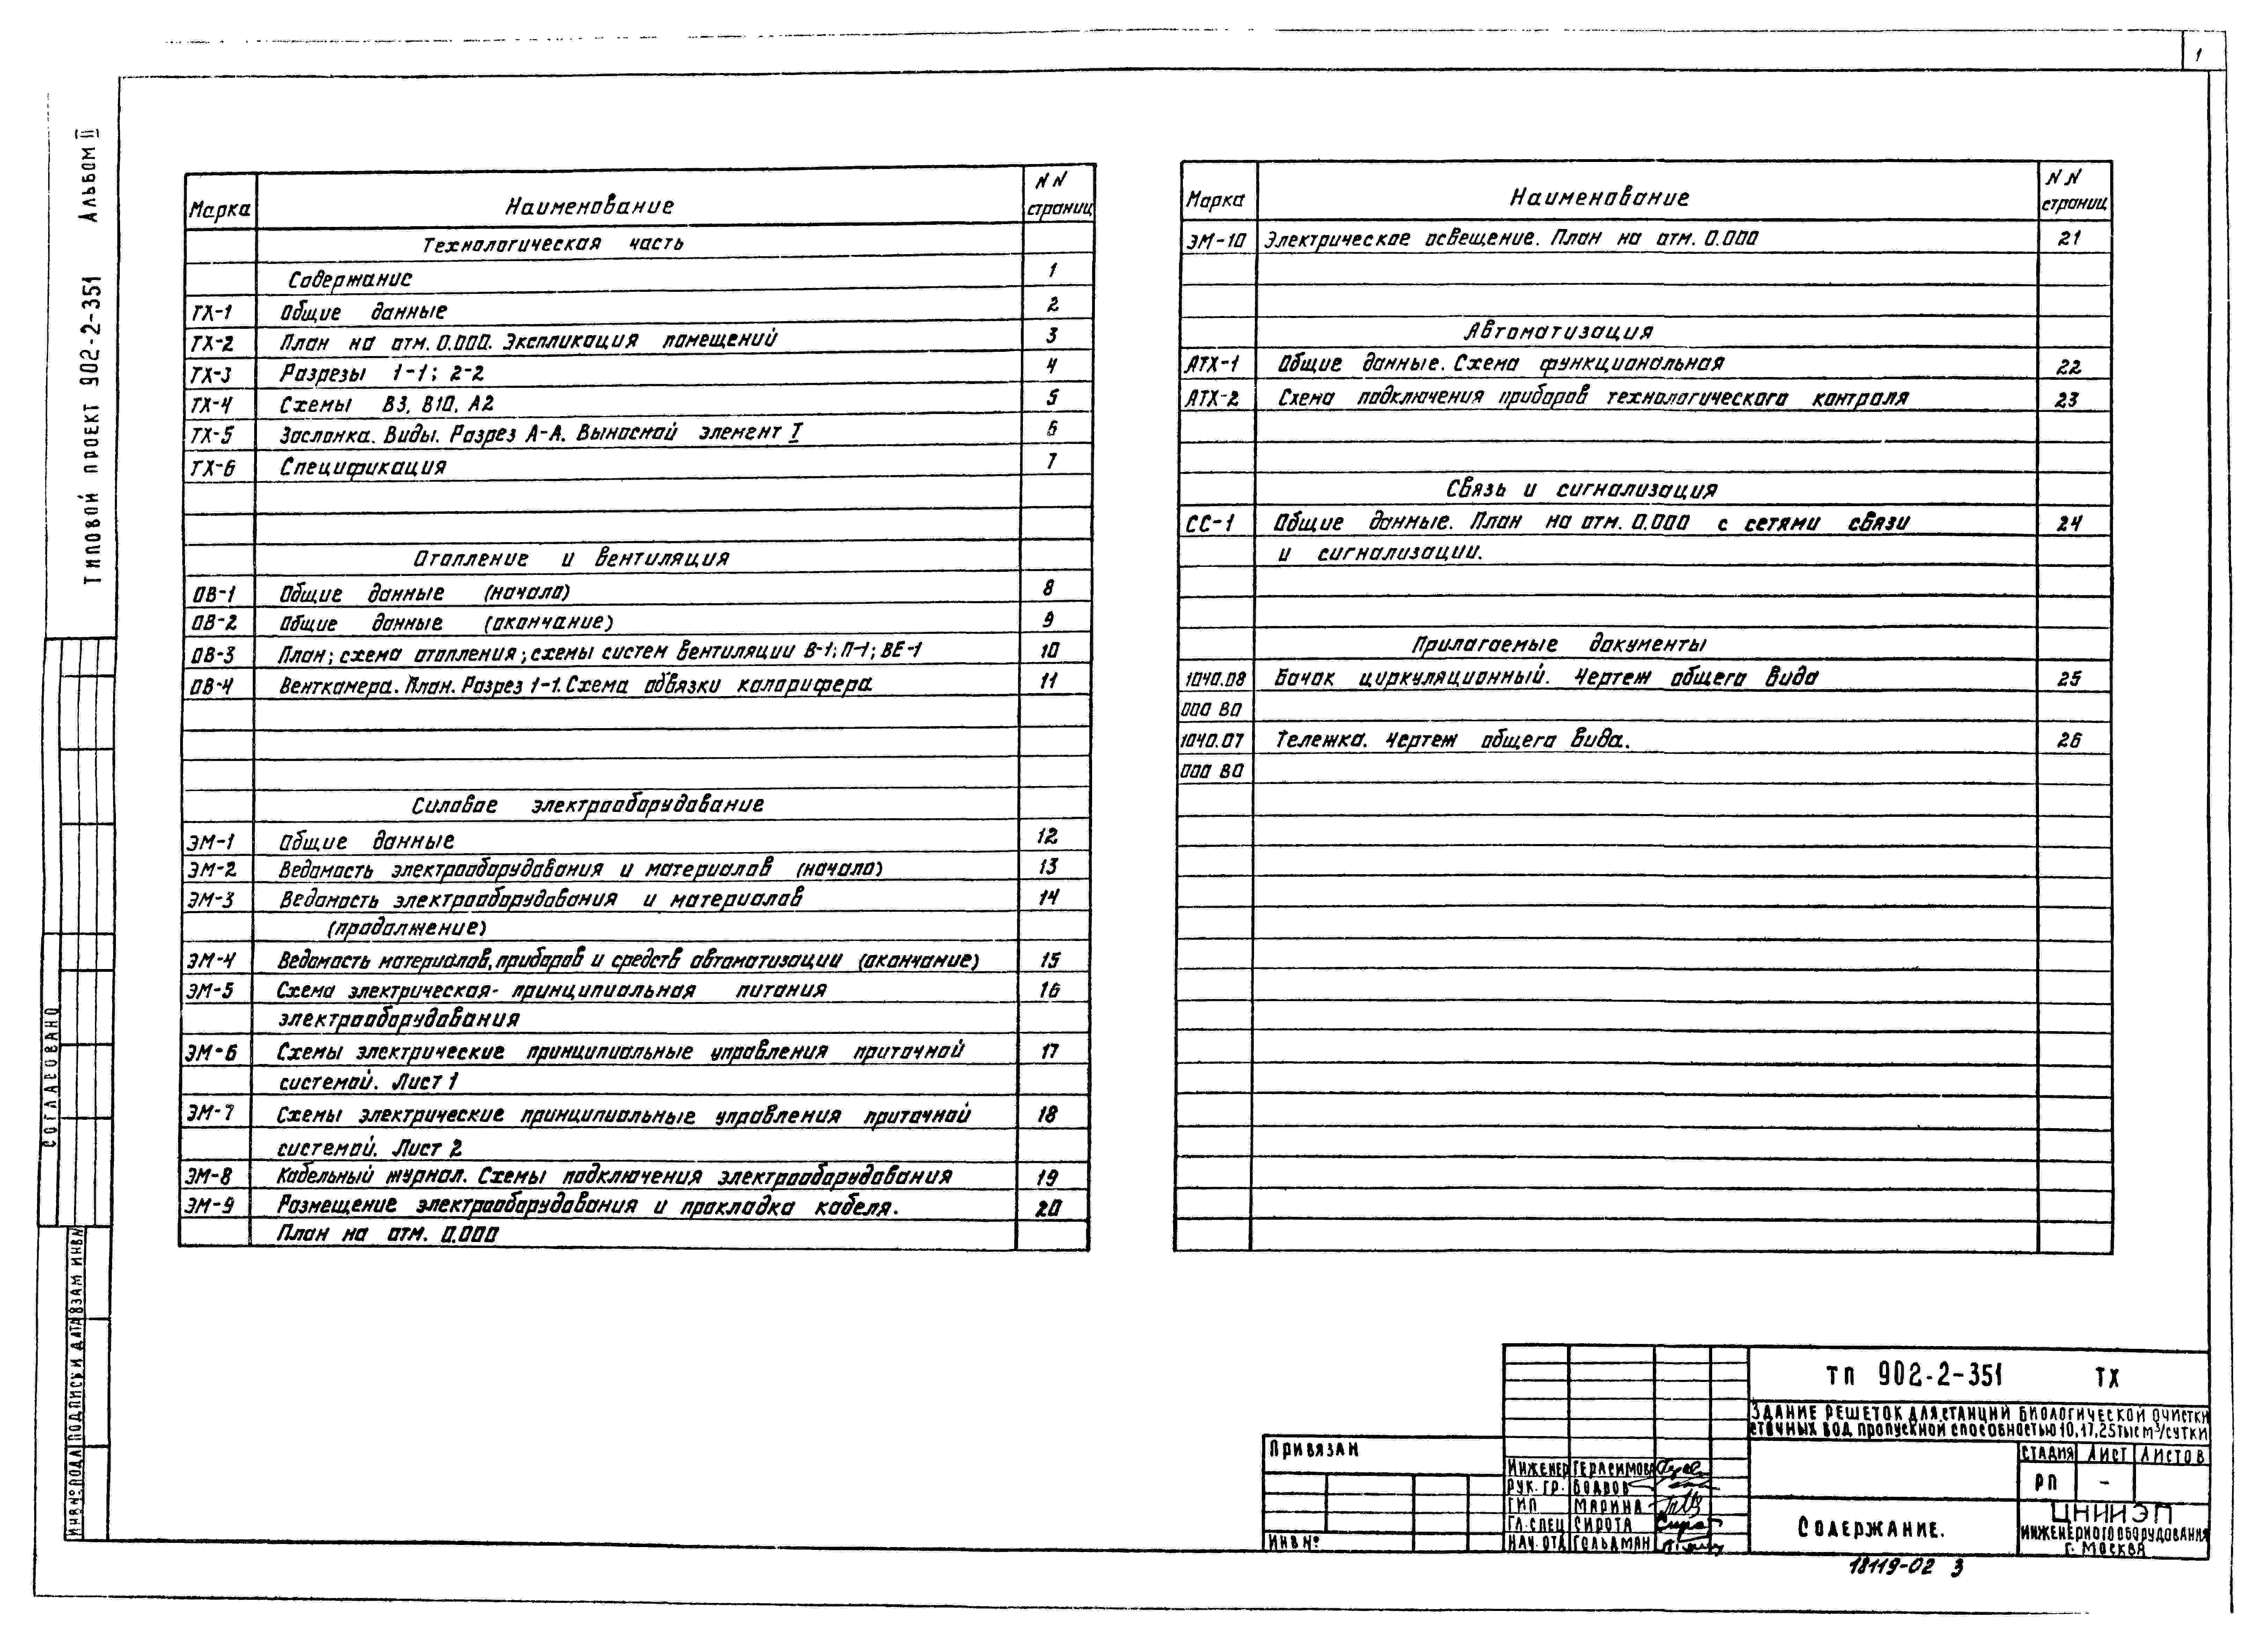 1
Типовой проект 902-2-351 Альбом II
Марка Наименование NN страниц
Технологическая часть
Содержание 1
ТХ-1 Общие данные 2
ТХ-2 План на отм. 0.000. Экспликация помещений 3
ТХ-3 Разрезы 1-1; 2-2 4
ТХ-4 Схемы В3, В10, А2 5
ТХ-5 Заслонка. Виды. Разрез А-А. Выносной элемент I 6
ТХ-6 Спецификация 7
Отопление и вентиляция
ОВ-1 Общие данные (начало) 8
ОВ-2 Общие данные (окончание) 9
ОВ-3 План; схема отопления; схемы систем вентиляции В-1; П-1; ВЕ-1 10
ОВ-4 Венткамера. План. Разрез 1-1. Схема обвязки калорифера 11
Силовое электрооборудование
ЭМ-1 Общие данные 12
ЭМ-2 Ведомость электрооборудования и материалов (начало) 13
ЭМ-3 Ведомость электрооборудования и материалов 14
(продолжение)
ЭМ-4 Ведомость материалов, приборов и средств автоматизации (окончание) 15
ЭМ-5 Схема электрическая- принципиальная питания 16
электрооборудования
ЭМ-6 Схемы электрические принципиальные управления приточной 17
системой. Лист 1
ЭМ-7 Схемы электрические принципиальные управления приточной 18
системой. Лист 2
ЭМ-8 Кабельный журнал. Схемы подключения электрооборудования 19
ЭМ-9 Размещение электрооборудования и прокладка кабеля. 20
План на отм. 0.000
Марка Наименование NN страниц
ЭМ-10 Электрическое освещение. План на отм. 0.000 21
Автоматизация
АТХ-1 Общие данные. Схема функциональная 22
АТХ-2 Схема подключения приборов технологического контроля 23
Связь и сигнализация
СС-1 Общие данные. План на отм. 0.000 с сетями связи 24
и сигнализации.
Прилагаемые документы
1040.08 Бачок циркуляционный. Чертеж общего вида 25
000 ВО
1040.07 Тележка. Чертеж общего вида. 26
000 ВО
СОГЛАСОВАНО
ИНВ№ПОДЛ ПОДПИСЬ И ДАТА ВЗАМ ИНВ№
Привязан
ИНВ№
ТП 902-2-351 ТХ
ЗДАНИЕ РЕШЕТОК ДЛЯ СТАНЦИЙ БИОЛОГИЧЕСКОЙ ОЧИСТКИ
СТОЧНЫХ ВОД ПРОПУСКНОЙ СПОСОБНОСТЬЮ 10,17,25 ТЫС М³/СУТКИ
СТАДИЯ ЛИСТ ЛИСТОВ
РП -
ИНЖЕНЕР ГЕРАСИМОВА
РУК. ГР.
ГИП МАРИНА
ГЛ.СПЕЦ СИРОТА
НАЧ.ОТД ГОЛЬДМАН
СОДЕРЖАНИЕ.
ЦНИИЭП
ИНЖЕНЕРНОГО ОБОРУДОВАНИЯ
Г. МОСКВА
18119-02 3